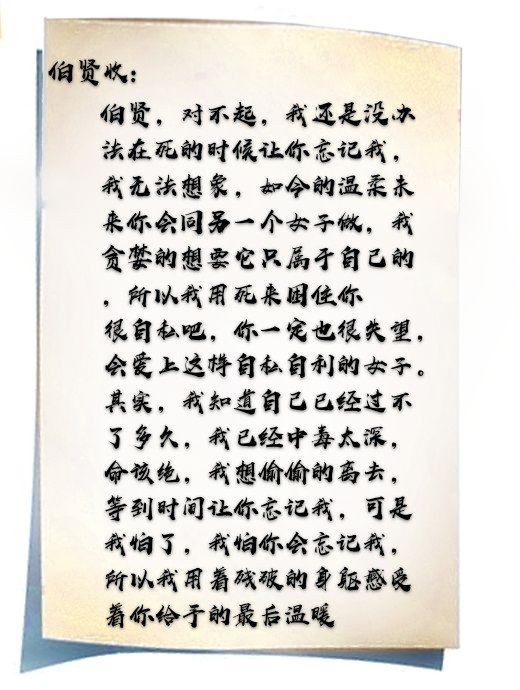 伯贤收：
伯贤，对不起，我还是没办
法在死的时候让你忘记我，
我无法想象，如今的温柔未
来你会同另一个女子做，我
贪婪的想要它只属于自己的
，所以我用死来困住你
很自私吧，你一定也很失望，
会爱上这样自私自利的女子。
其实，我知道自己已经过不
了多久，我已经中毒太深，
命该绝，我想偷偷的离去，
等到时间让你忘记我，可是
我怕了，我怕你会忘记我，
所以我用着残破的身躯感受
着你给予的最后温暖